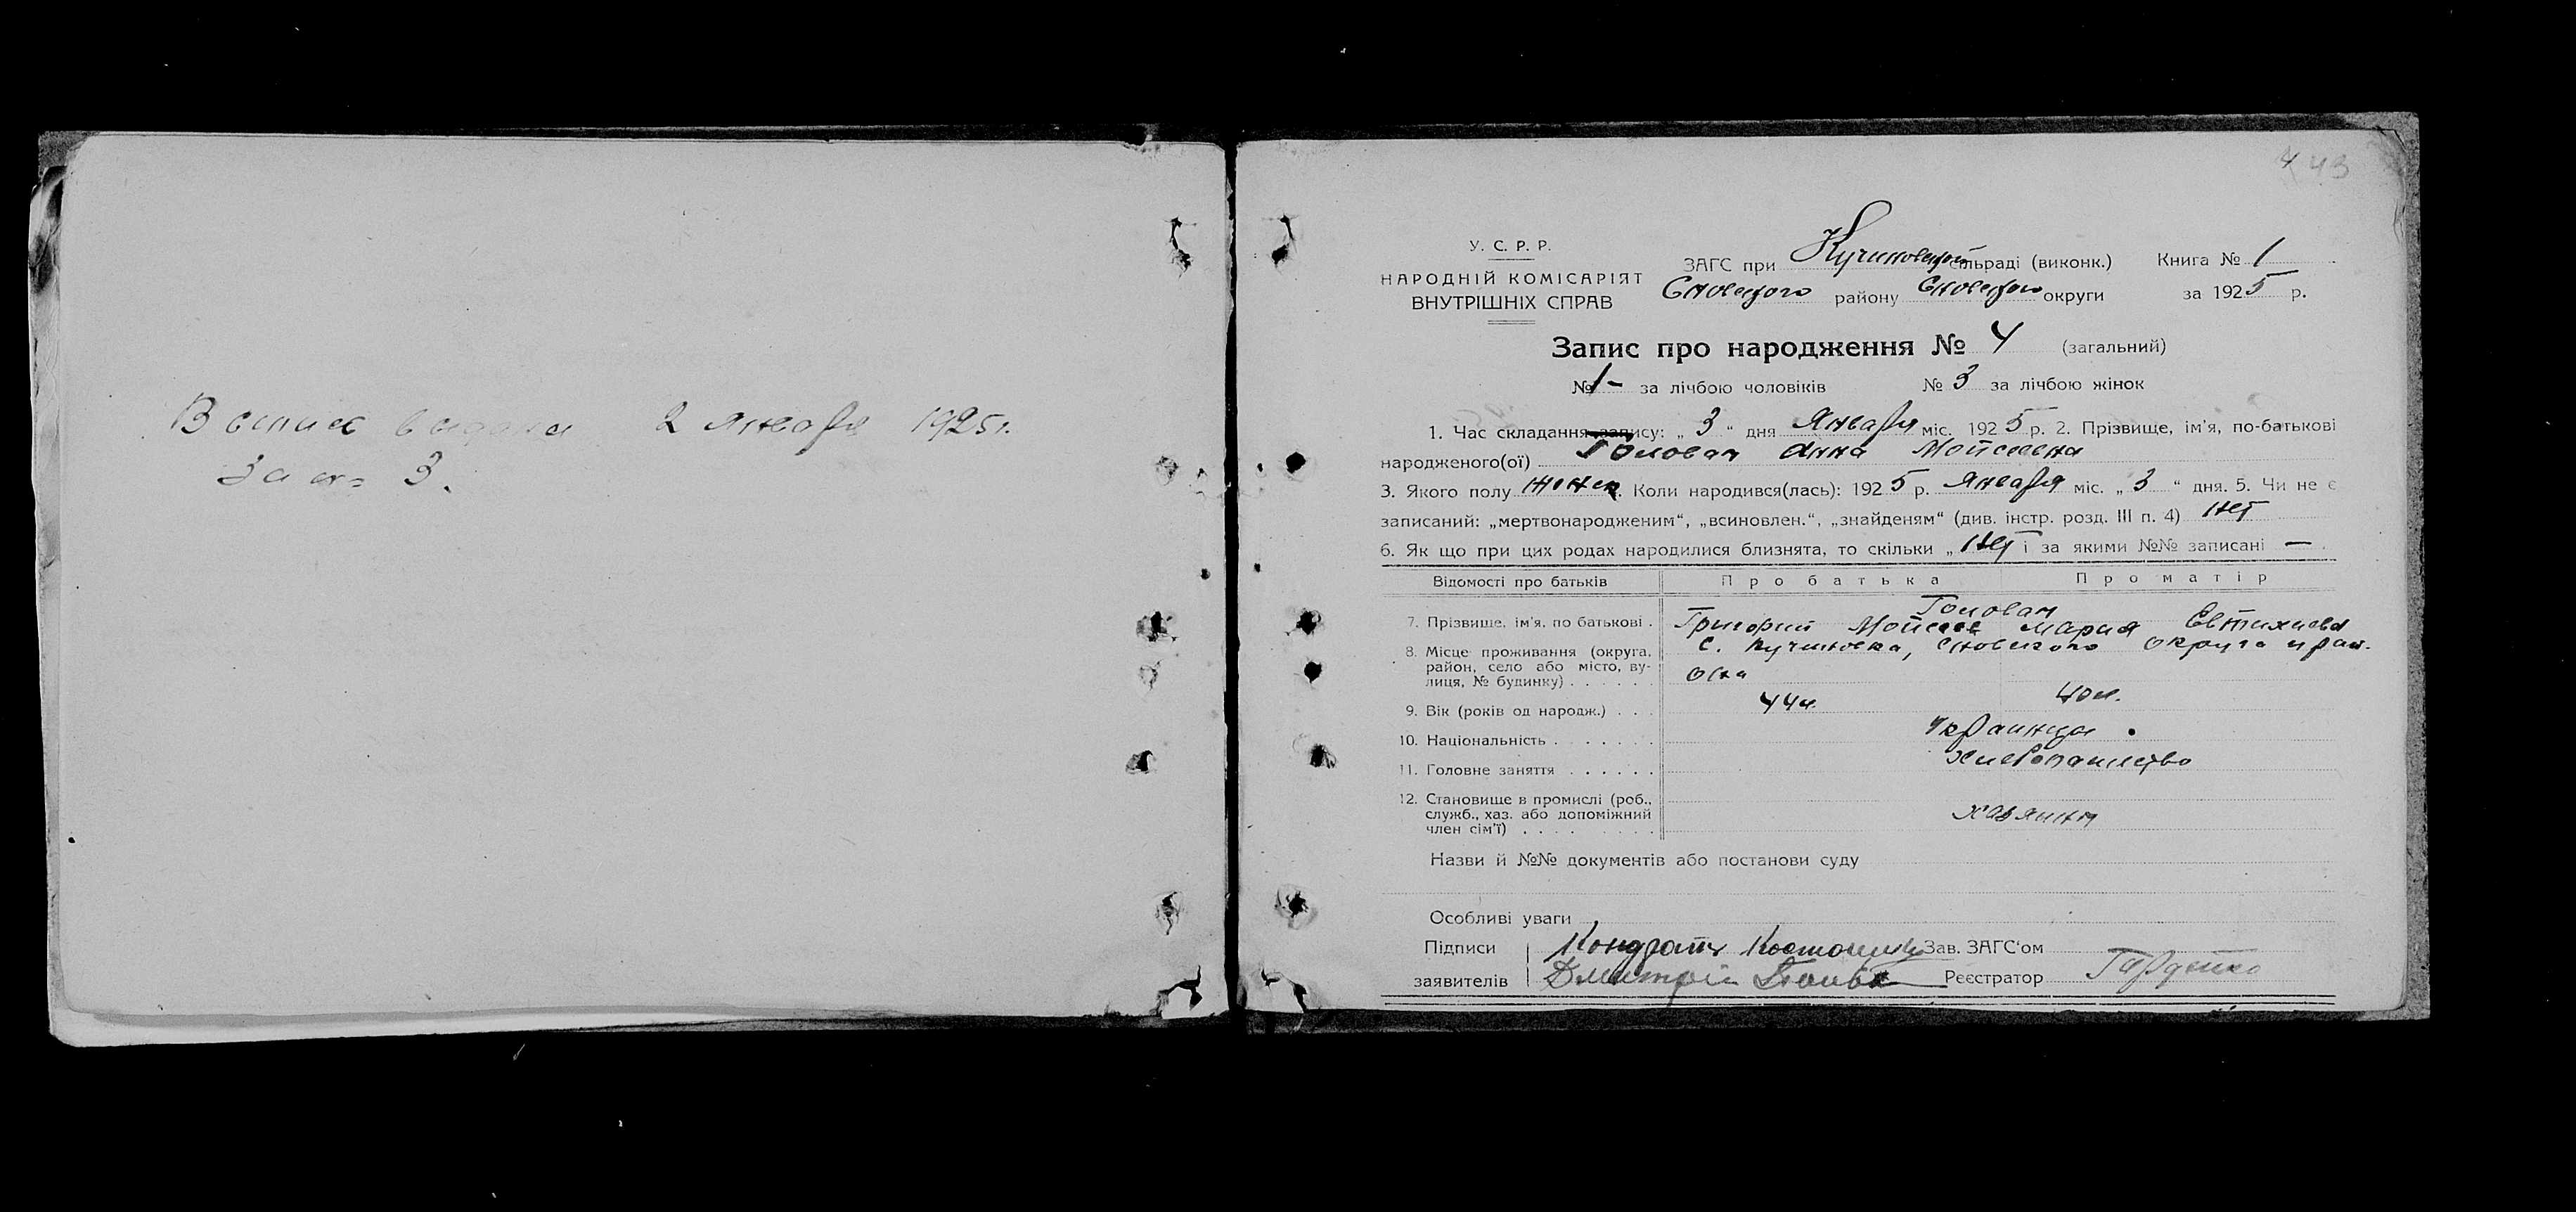 Выпись выдана 2 Января 1925 г.
За № 3.
4 43
У. С. Р. Р.
НАРОДНІЙ КОМІСАРІЯТ
ВНУТРІШНІХ СПРАВ
ЗАГС при Кучиновской сільраді (виконк.) Книга № 1
Сновского району Сновского округи за 1925 р.
Запис про народження № 4 (загальний)
№ 1- за лічбою чоловіків № 3 за лічбою жінок
1. Час складання запису: „ 3 “ дня Января міс. 1925 р. 2. Прізвище, ім'я, по-батькові
народженого(ої) Головач Анна Мойсеевна
3. Якого полу женск. Коли народився(лась): 1925 р. Января міс. „ 3 “ дня. 5. Чи не є
записаний: „мертвонародженим“, „всиновлен.“, „знайденям“ (див. інстр. розд. III п. 4) нет
6. Як що при цих родах народилися близнята, то скільки „ нет і за якими №№ записані — .
Відомості про батьків Про батька Про матір
Головач
7. Прізвище, ім'я, по батькові . Григорий Мойсеев Мария Евтихиева
8. Місце проживання (округа, район, село або місто, вулиця, № будинку) . . . . . . с. Кучиновка, Сновского округа и рай-
она
9. Вік (років од народж.) . . . 44 л. 40 л.
10. Національність . . . . . . . Украинцы
11. Головне заняття . . . . . . Хлебопашество
12. Становище в промислі (роб.,
служб., хаз. або допоміжний хозяин
член сім'ї) . . . . . . . .
Назви й №№ документів або постанови суду
Особливі уваги
Підписи Кондрат Зав. ЗАГС'ом
заявителів Дмитрий Реєстратор Гардейко